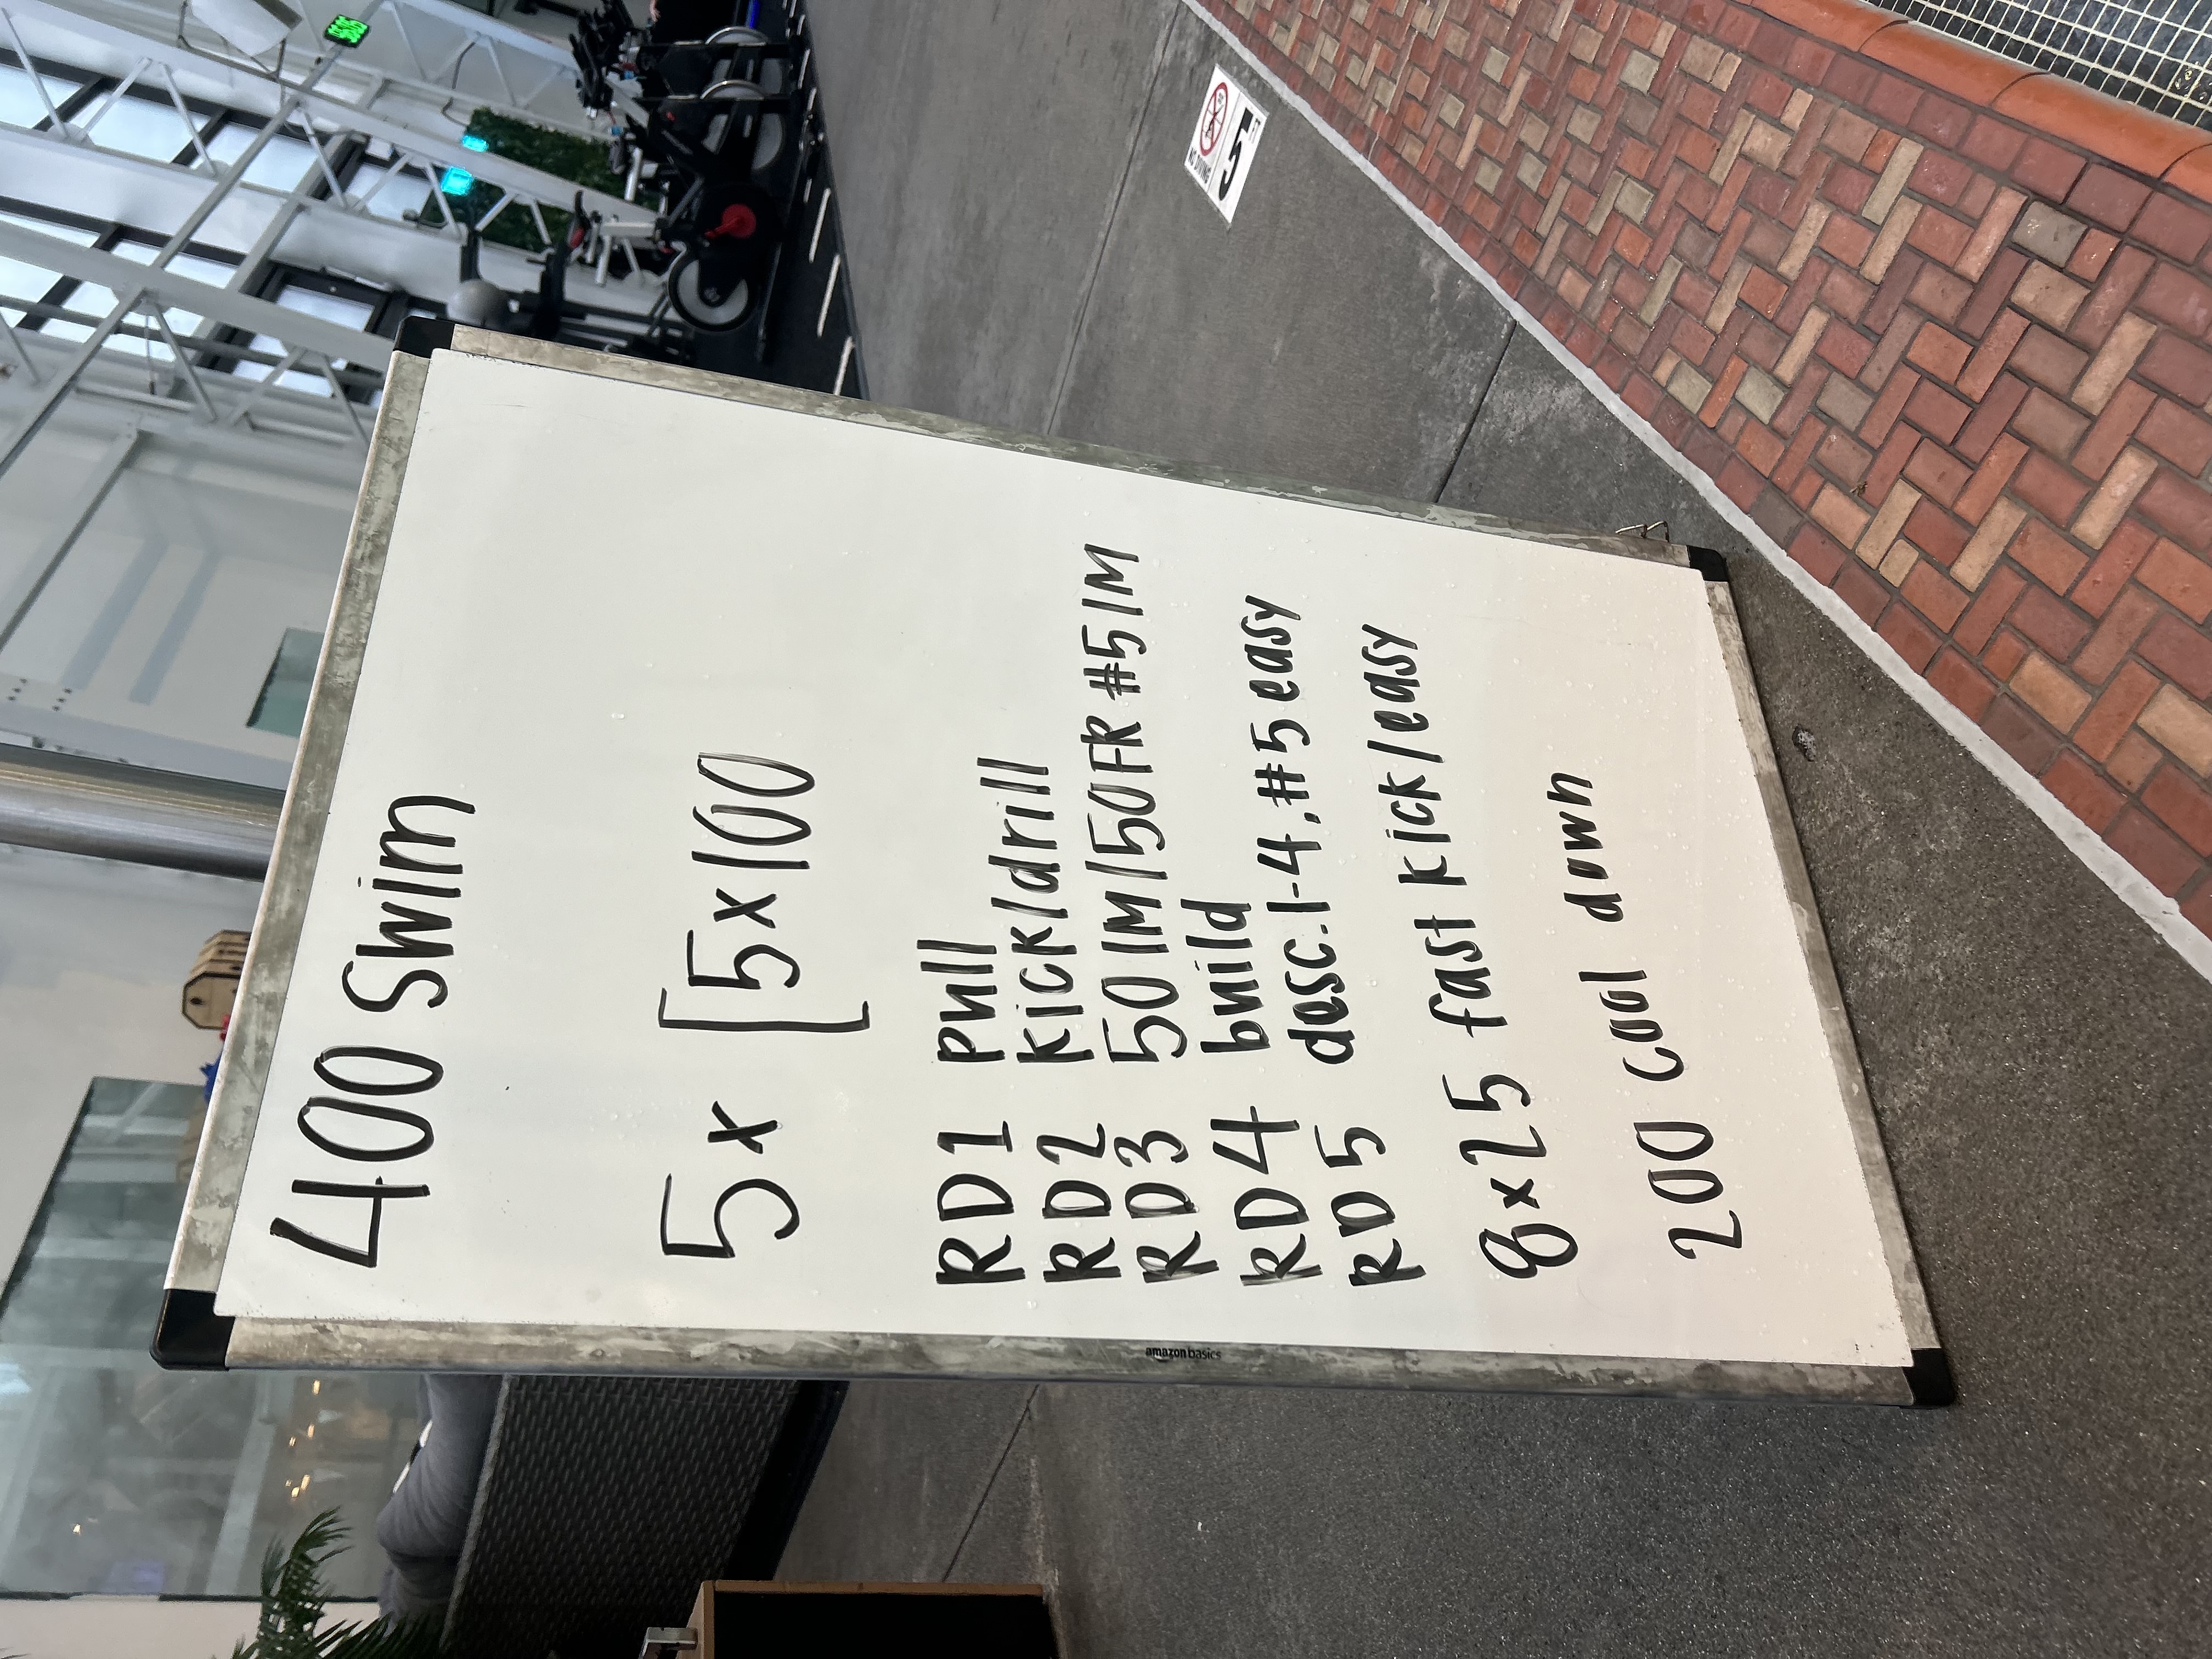 400 Swim
5x [5x100
RD1 pull
RD2 kick/drill
RD3 50 IM/50FR #5 IM
RD4 build
RD5 desc. 1-4. #5 easy
8x25 fast kick/easy
200 cool down
amazon basics
NO DIVING
5 FT